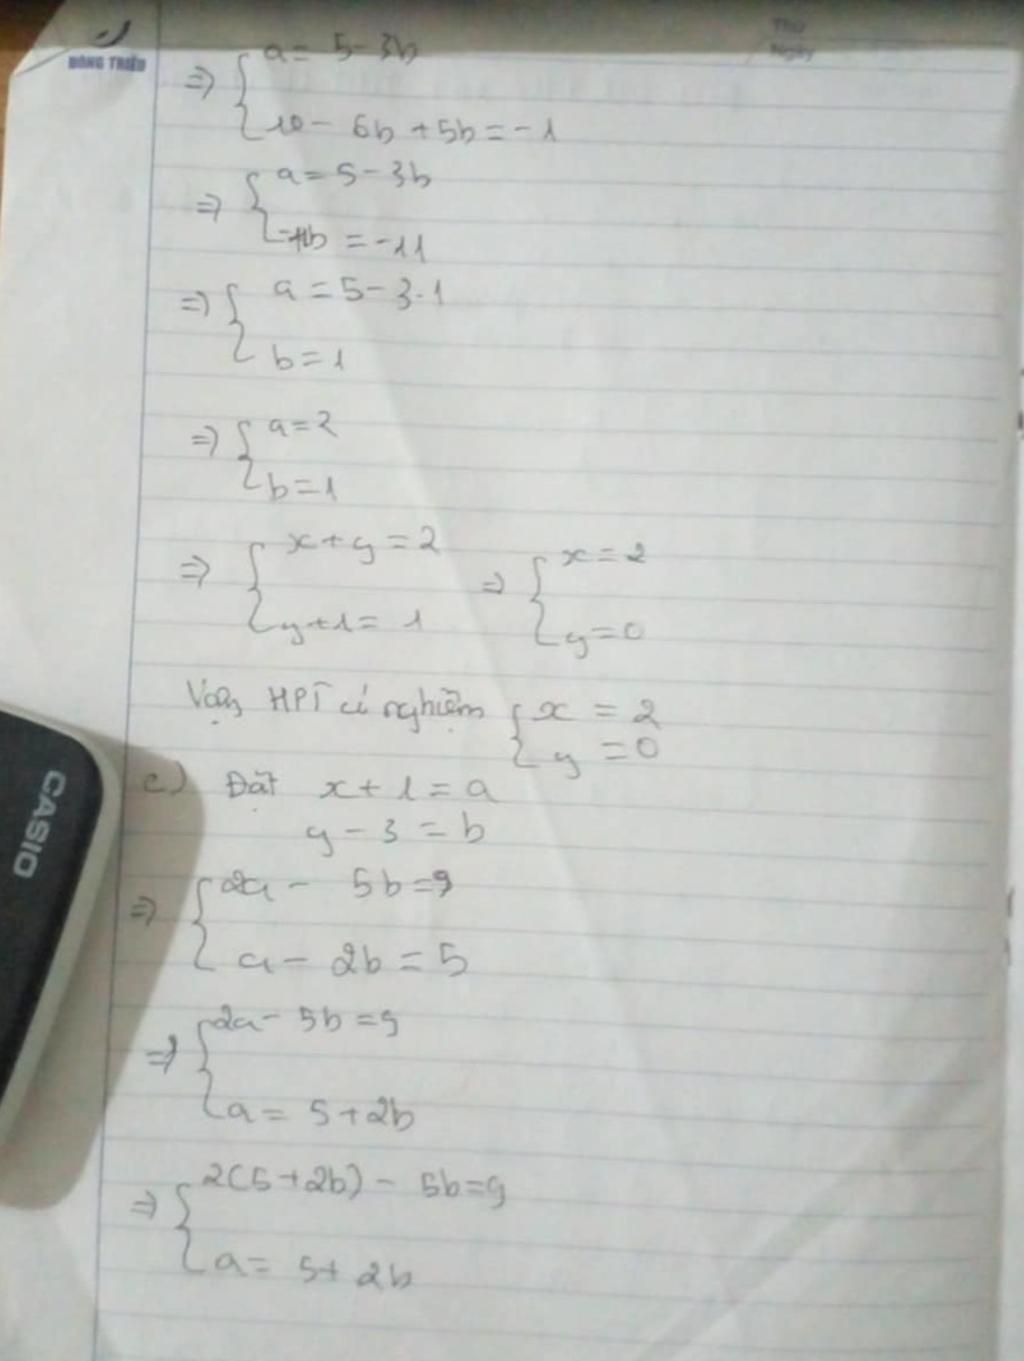 Thứ
Ngày
ĐÔNG TRIỀU
=> { a = 5 - 3b
10 - 6b + 5b = -1
=> { a = 5 - 3b
= -11
=> { a = 5 - 3.1
b = 1
=> { a = 2
b = 1
=> { x + y = 2 => { x = 2
y + 1 = 1 y = 0
Vậy HPT có nghiệm { x = 2
y = 0
c) Đặt x + 1 = a
y - 3 = b
=> { 2a - 5b = 9
a - 2b = 5
=> { 2a - 5b = 9
a = 5 + 2b
=> { 2(5 + 2b) - 5b = 9
a = 5 + 2b
CASIO